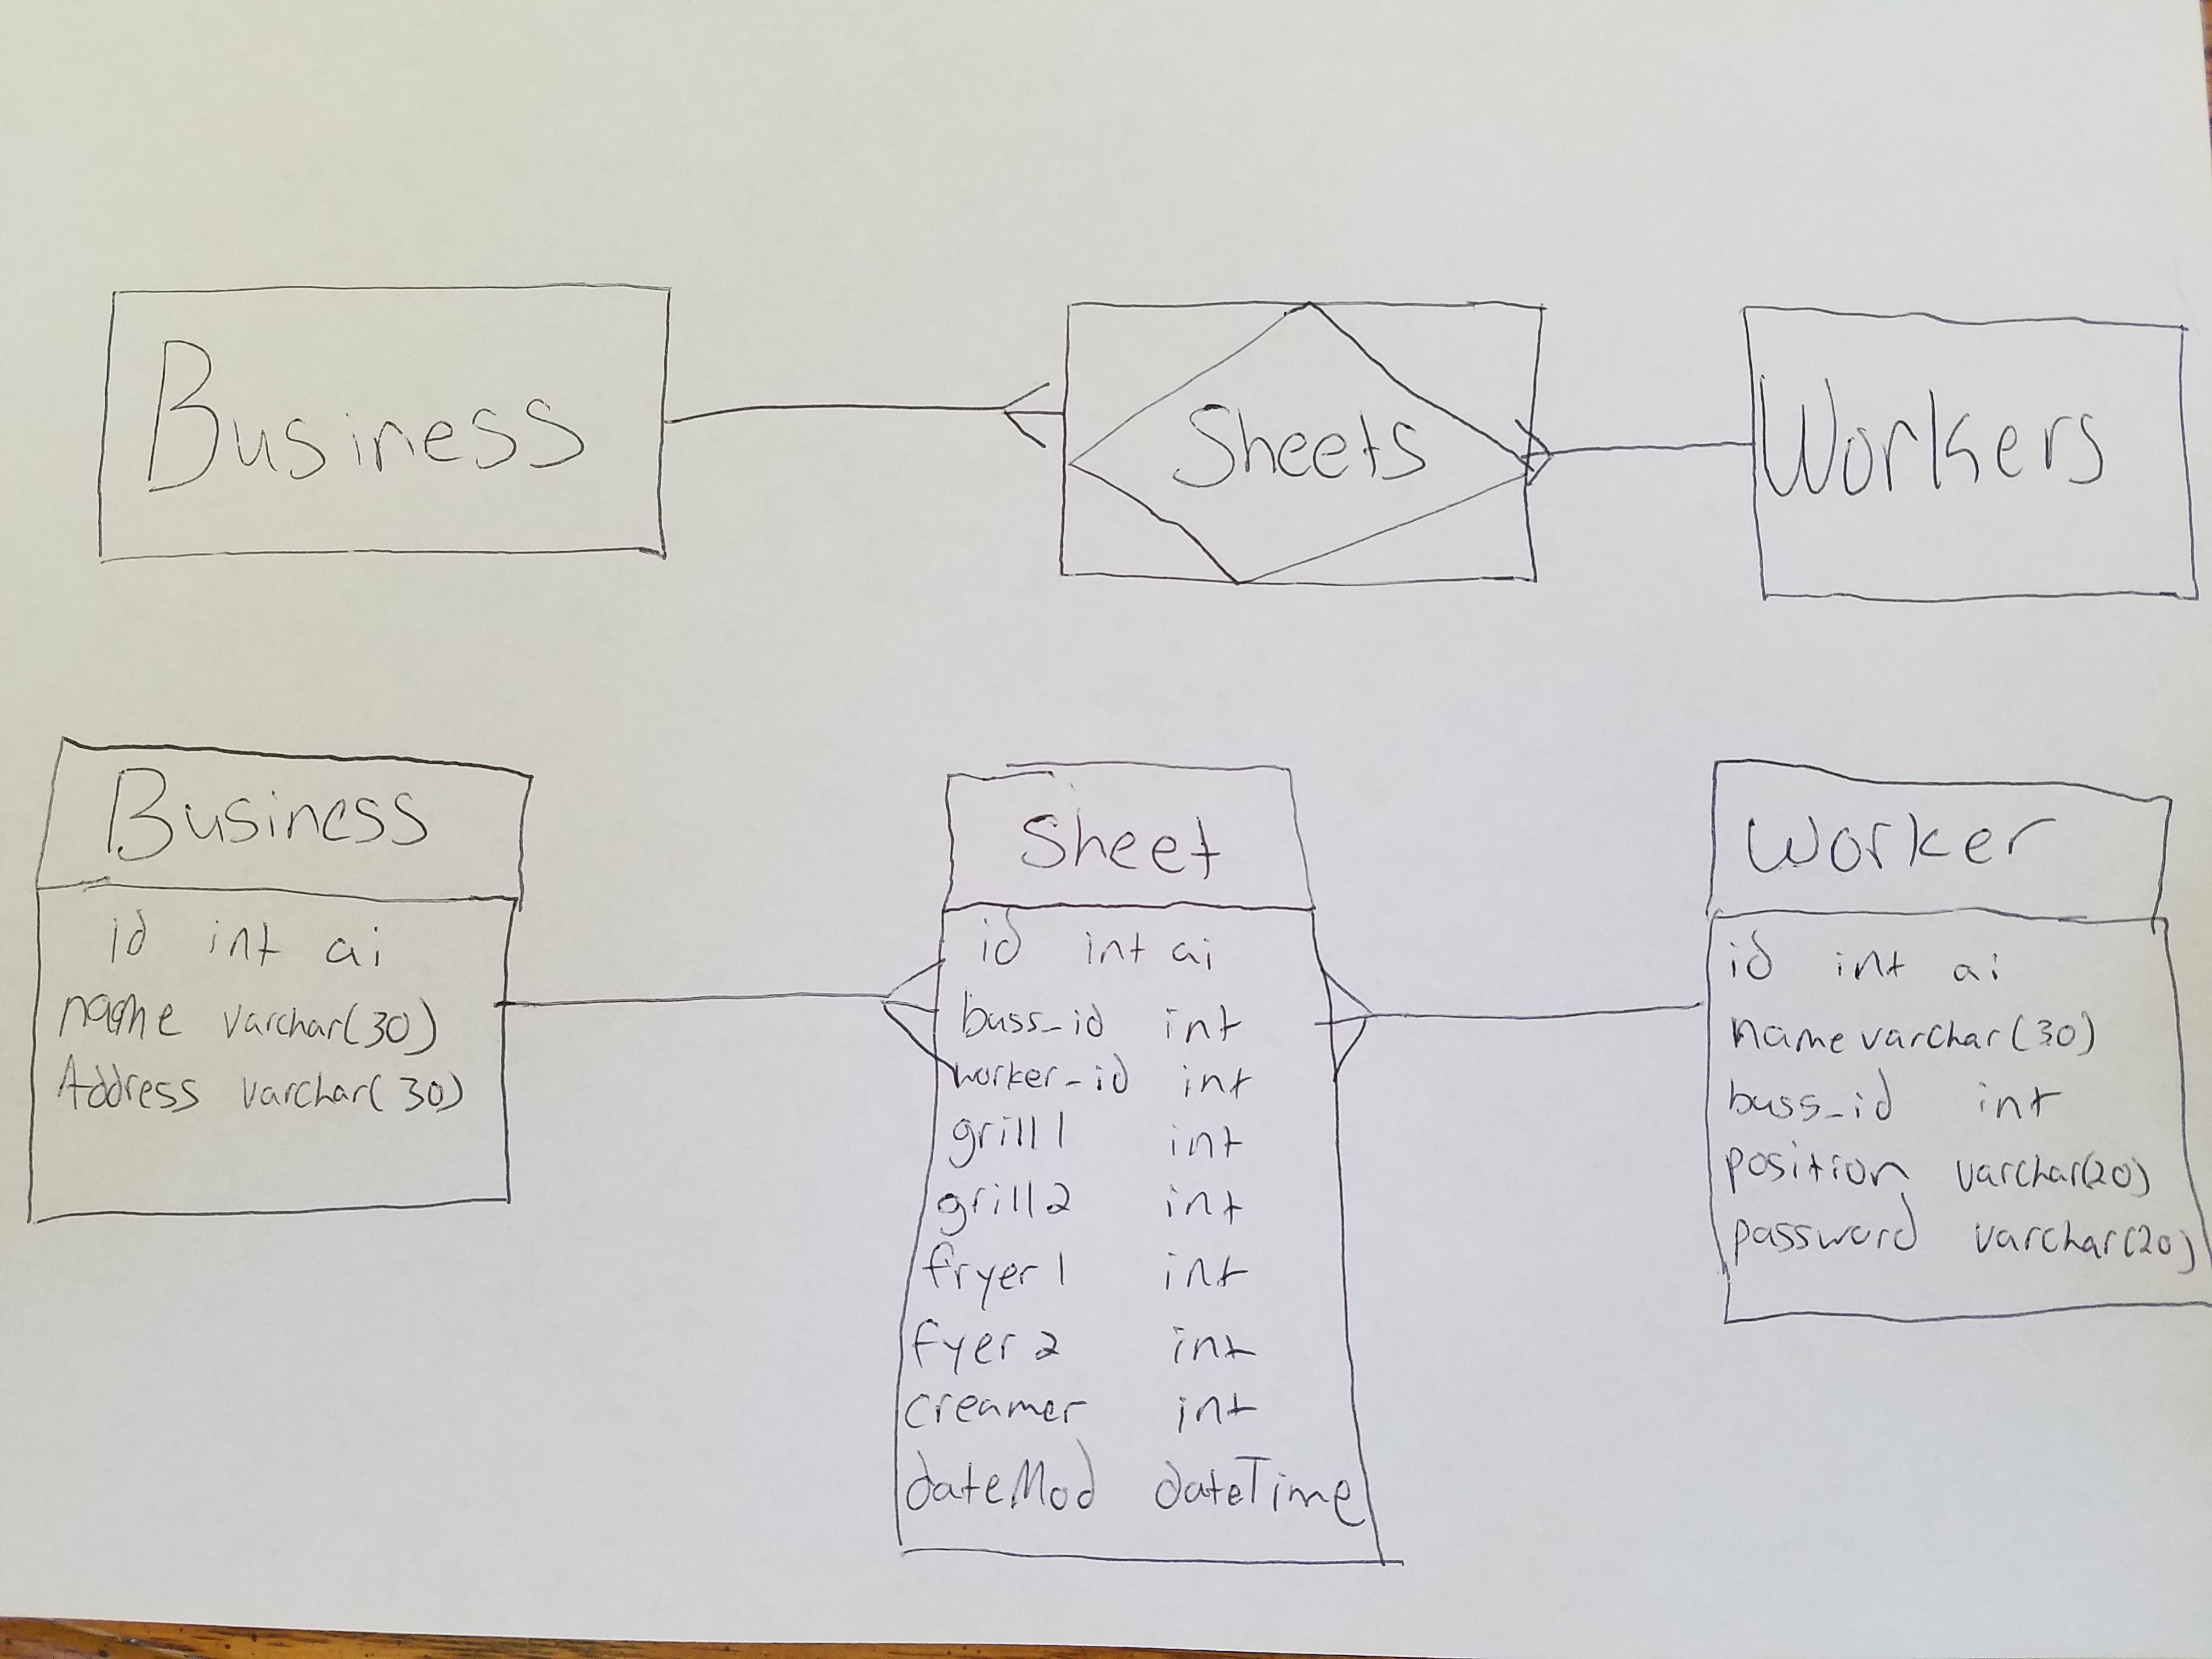 Business
Sheets
Workers
Business
id int ai
name varchar(30)
Address varchar(30)
Sheet
id int ai
buss_id int
worker_id int
grill1 int
grill2 int
fryer1 int
fyer2 int
creamer int
dateMod dateTime
Worker
id int ai
name varchar(30)
buss_id int
position varchar(20)
password varchar(20)